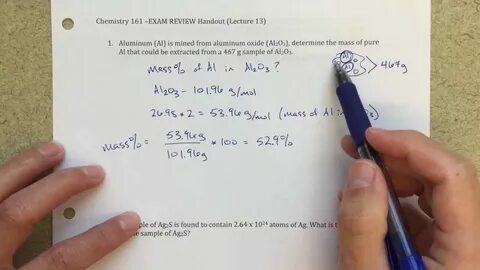 Chemistry 161 –EXAM REVIEW Handout (Lecture 13)
1. Aluminum (Al) is mined from aluminum oxide (Al₂O₃), determine the mass of pure
Al that could be extracted from a 467 g sample of Al₂O₃.
Al
Al
O
O
467g
mass% of Al in Al₂O₃?
Al₂O₃ - 101.96 g/mol
26.98 * 2 = 53.96g/mol (mass of Al in
mass% = 53.96g / 101.96g * 100 = 52.9%
of Ag₂S is found to contain 2.64 x 10²⁴ atoms of Ag. What is
sample of Ag₂S?